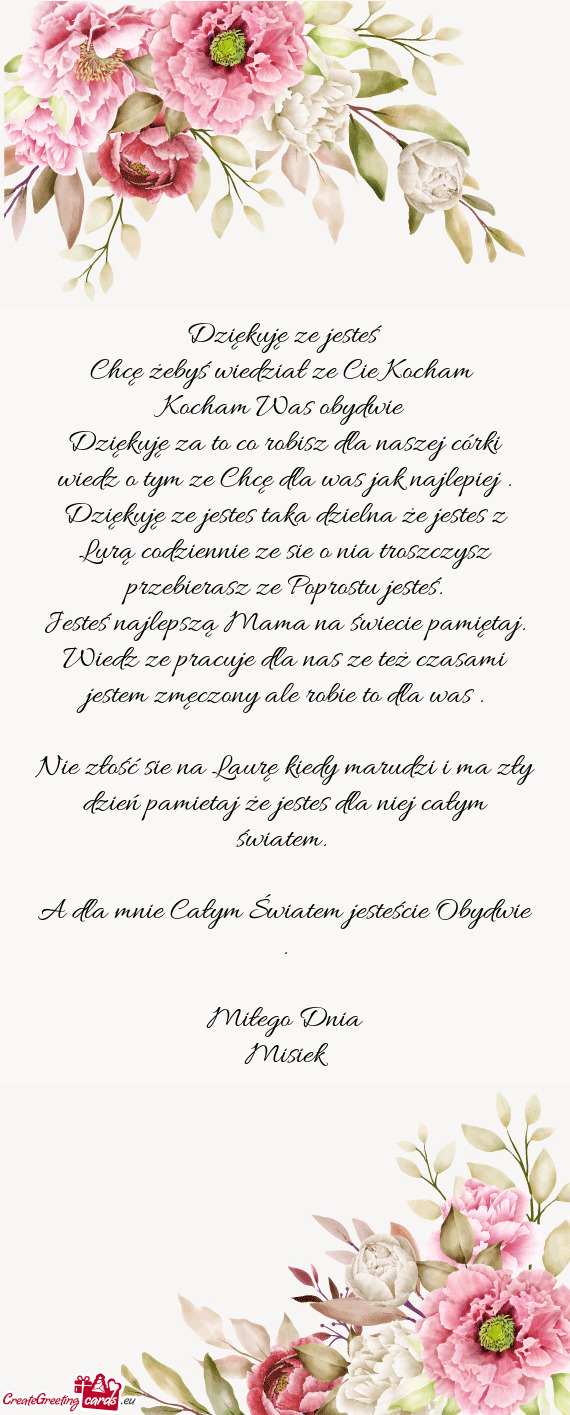 Dziękuję ze jesteś
Chcę żebyś wiedział ze Cie Kocham
Kocham Was obydwie
Dziękuję za to co robisz dla naszej córki
wiedz o tym ze Chcę dla was jak najlepiej .
Dziękuję ze jestes taka dzielna że jestes z
Lurą codziennie ze sie o nia troszczysz
przebierasz ze Poprostu jesteś.
Jesteś najlepszą Mama na świecie pamiętaj.
Wiedz ze pracuje dla nas ze też czasami
jestem zmęczony ale robie to dla was .
Nie złość sie na Laurę kiedy marudzi i ma zły
dzień pamietaj że jestes dla niej całym
światem.
A dla mnie Całym Światem jesteście Obydwie
.
Miłego Dnia
Misiek
CreateGreeting cards .eu